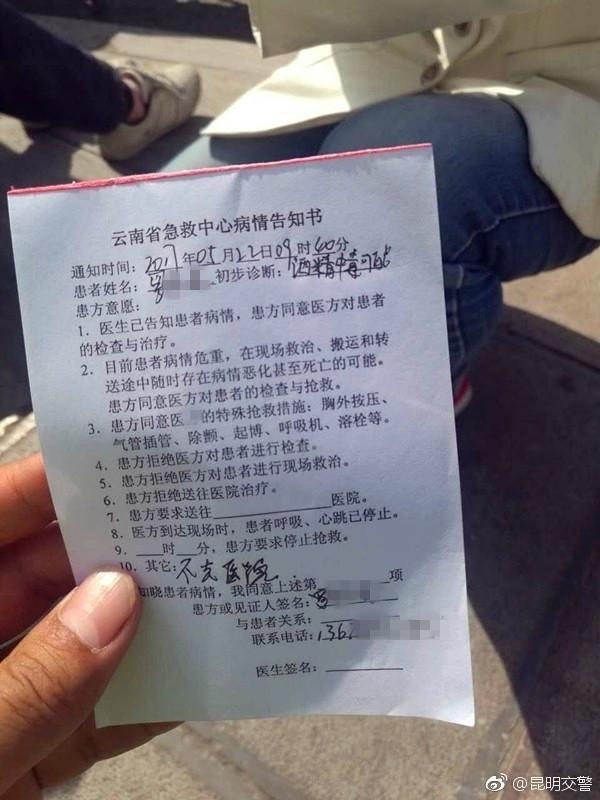 云南省急救中心病情告知书
通知时间：2017年05月22日09时40分
患者姓名：罗 初步诊断：酒精中毒可能
患方意愿：
1、医生已告知患者病情，患方同意医方对患者
的检查与治疗。
2、目前患者病情危重，在现场救治、搬运和转
送途中随时存在病情恶化甚至死亡的可能。
患方同意医方对患者的检查与抢救。
3、患方同意医 的特殊抢救措施：胸外按压、
气管插管、除颤、起搏、呼吸机、溶栓等。
4、患方拒绝医方对患者进行检查。
5、患方拒绝医方对患者进行现场救治。
6、患方拒绝送往医院治疗。
7、患方要求送往____________医院。
8、医方到达现场时，患者呼吸、心跳已停止。
9、___时___分，患方要求停止抢救。
10、其它：不去医院
知晓患者病情，我同意上述第 项
患方或见证人签名：罗
与患者关系：
联系电话：136
医生签名：________
@昆明交警